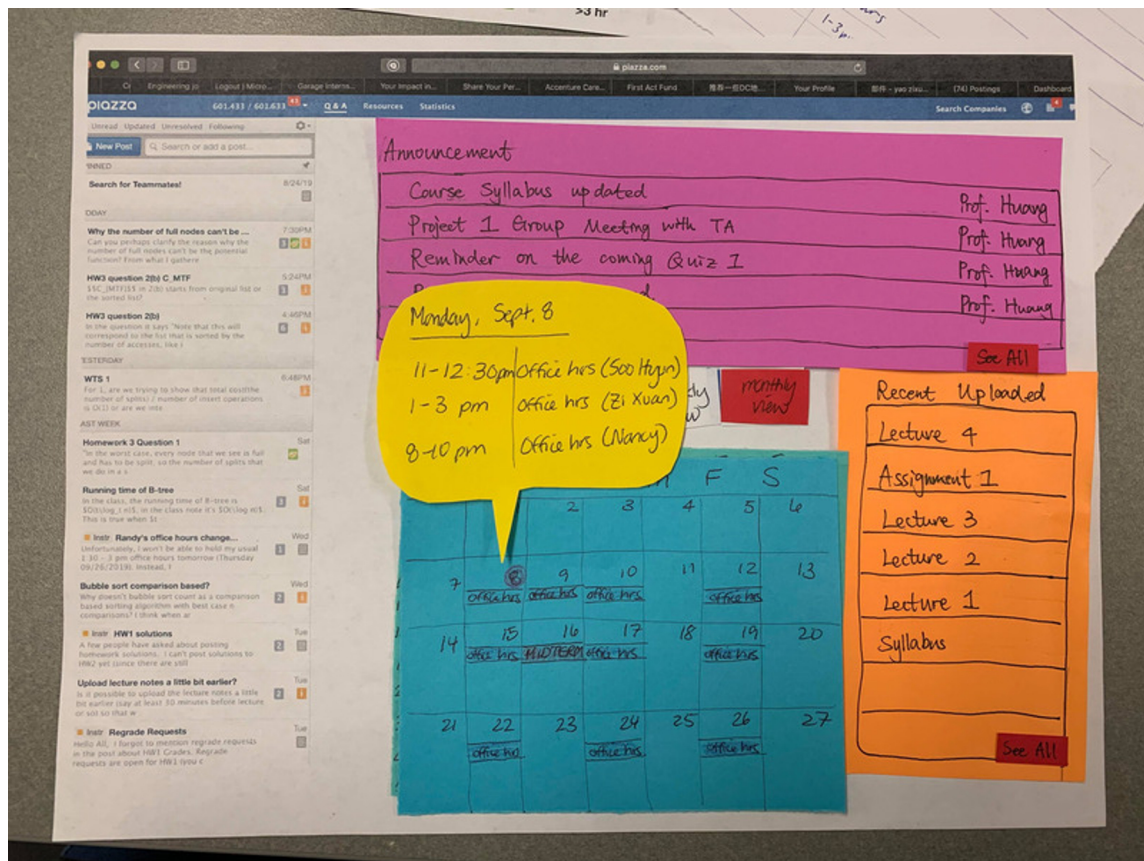 >3 hr
1-3p
piazza.com
Engineering jo
Logout | Micro...
Garage Interns...
Your Impact in...
Share Your Per...
Accenture Care...
First Act Fund
Your Profile
(74) Postings
Dashboard
piazza
601.433 / 601.633
43
Q & A
Resources
Statistics
Search Companies
4
Unread Updated Unresolved Following
New Post
Search or add a post...
Search for Teammates!
8/24/19
Why the number of full nodes can't be ...
7:30PM
Can you perhaps clarify the reason why the
number of full nodes can't be the potential
function? From what I gathere
HW3 question 2(b) C_MTF
5:24PM
$$C_{MTF}$$ in 2(b) starts from original list or
the sorted list?
HW3 question 2(b)
4:46PM
In the question it says "Note that this will
correspond to the list that is sorted by the
number of accesses, like i
WTS 1
6:48PM
For 1, are we trying to show that total cost(the
number of splits) / number of insert operations
is O(1) or are we inte
AST WEEK
Homework 3 Question 1
Sat
"In the worst case, every node that we see is full
and has to be split, so the number of splits that
we do in a s
Running time of B-tree
Sat
In the class, the running time of B-tree is
This is true when $t
Instr Randy's office hours change...
Wed
Unfortunately, I won't be able to hold my usual
1:30 - 3 pm office hours tomorrow (Thursday
09/26/2019). Instead, I
Bubble sort comparison based?
Wed
Why doesn't bubble sort count as a comparison
based sorting algorithm with best case n
comparisons? I think when ar
Instr HW1 solutions
Tue
A few people have asked about posting
homework solutions. I can't post solutions to
HW2 yet (since there are still
Upload lecture notes a little bit earlier?
Tue
Is it possible to upload the lecture notes a little
bit earlier (say at least 30 minutes before lecture
or so) so that w
Instr Regrade Requests
Tue
Hello All, I forgot to mention regrade requests
in the post about HW1 Grades. Regrade
requests are open for HW1 (you c
Announcement
Course Syllabus updated Prof. Huang
Project 1 Group Meeting with TA Prof. Huang
Reminder on the coming Quiz 1 Prof. Huang
Prof. Huang
See All
Monday, Sept. 8
11-12:30pm Office hrs (Soo Hyun)
1-3 pm Office hrs (Zi Xuan)
8-10 pm Office hrs (Nancy)
monthly
view
F S
2 3 4 5 6
7 8 9 10 11 12 13
office hrs office hrs office hrs office hrs
14 15 16 17 18 19 20
office hrs MIDTERM office hrs office hrs
21 22 23 24 25 26 27
office hrs office hrs office hrs
Recent Uploaded
Lecture 4
Assignment 1
Lecture 3
Lecture 2
Lecture 1
Syllabus
See All